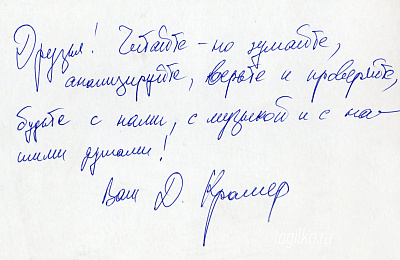 Друзья! Читайте - но думайте,
анализируйте, верьте и проверяйте,
будьте с нами, с музыкой и с на-
шими душами!
Ваш Д. Крамер